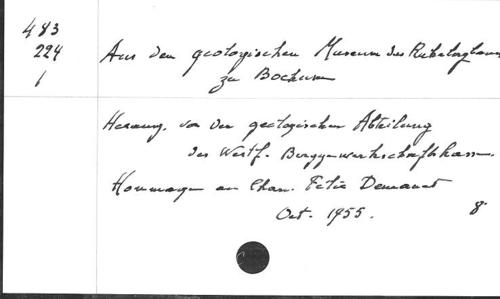 483
224
1
Aus dem geologischen Museum des Ruhrkohlen
zu Bochum
Herausg. von der geologischen Abteilung
der Westf. Berggewerkschaftskasse.
Hommage au Chan. Félix Demanet
Oct. 1955. 8°